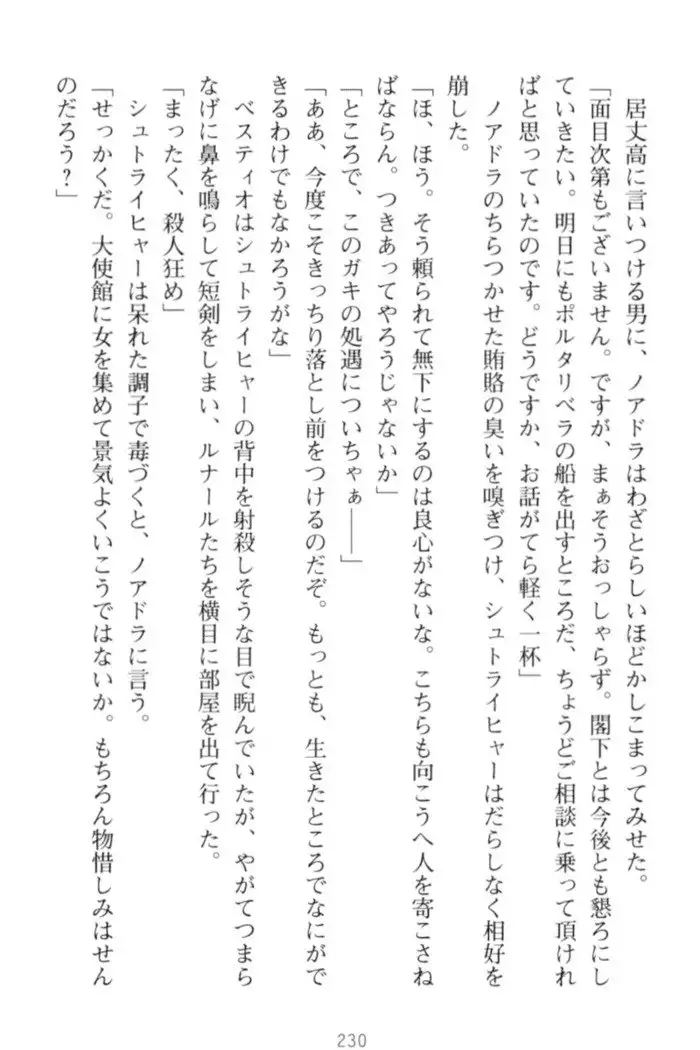 居丈高に言いつける男に、ノアドラはわざとらしいほどかしこまってみせた。
「面目次第もございません。ですが、まぁそうおっしゃらず。閣下とは今後とも懇ろにし
ていきたい。明日にもポルタリベラの船を出すところだ、ちょうどご相談に乗って頂けれ
ばと思っていたのです。どうですか、お話がてら軽く一杯」
ノアドラのちらつかせた賄賂の臭いを嗅ぎつけ、シュトライヒャーはだらしなく相好を
崩した。
「ほ、ほう。そう頼られて無下にするのは良心がないな。こちらも向こうへ人を寄こさね
ばならん。つきあってやろうじゃないか」
「ところで、このガキの処遇についちゃぁ――」
「ああ、今度こそきっちり落とし前をつけるのだぞ。もっとも、生きたところでなにがで
きるわけでもなかろうがな」
ベスティオはシュトライヒャーの背中を射殺しそうな目で睨んでいたが、やがてつまら
なげに鼻を鳴らして短剣をしまい、ルナールたちを横目に部屋を出て行った。
「まったく、殺人狂め」
シュトライヒャーは呆れた調子で毒づくと、ノアドラに言う。
「せっかくだ。大使館に女を集めて景気よくいこうではないか。もちろん物惜しみはせん
のだろう？」
230